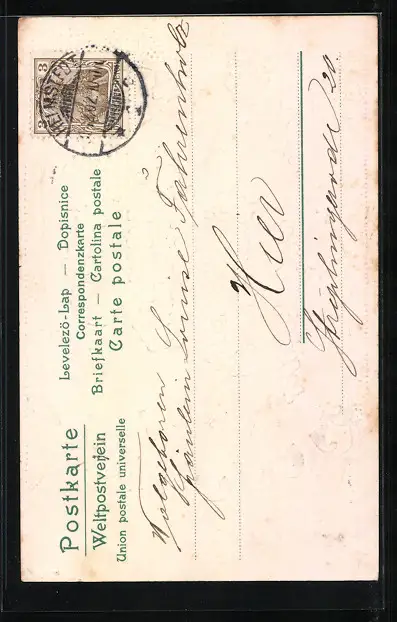 Postkarte
Weltpostverein
Union postale universelle
Levelező-Lap — Dopisnice
Correspondenzkarte
Briefkaart — Cartolina postale
Carte postale
3 3
HELMSTEDT
Fräulein Louise Fahrenholz
Hier
20.